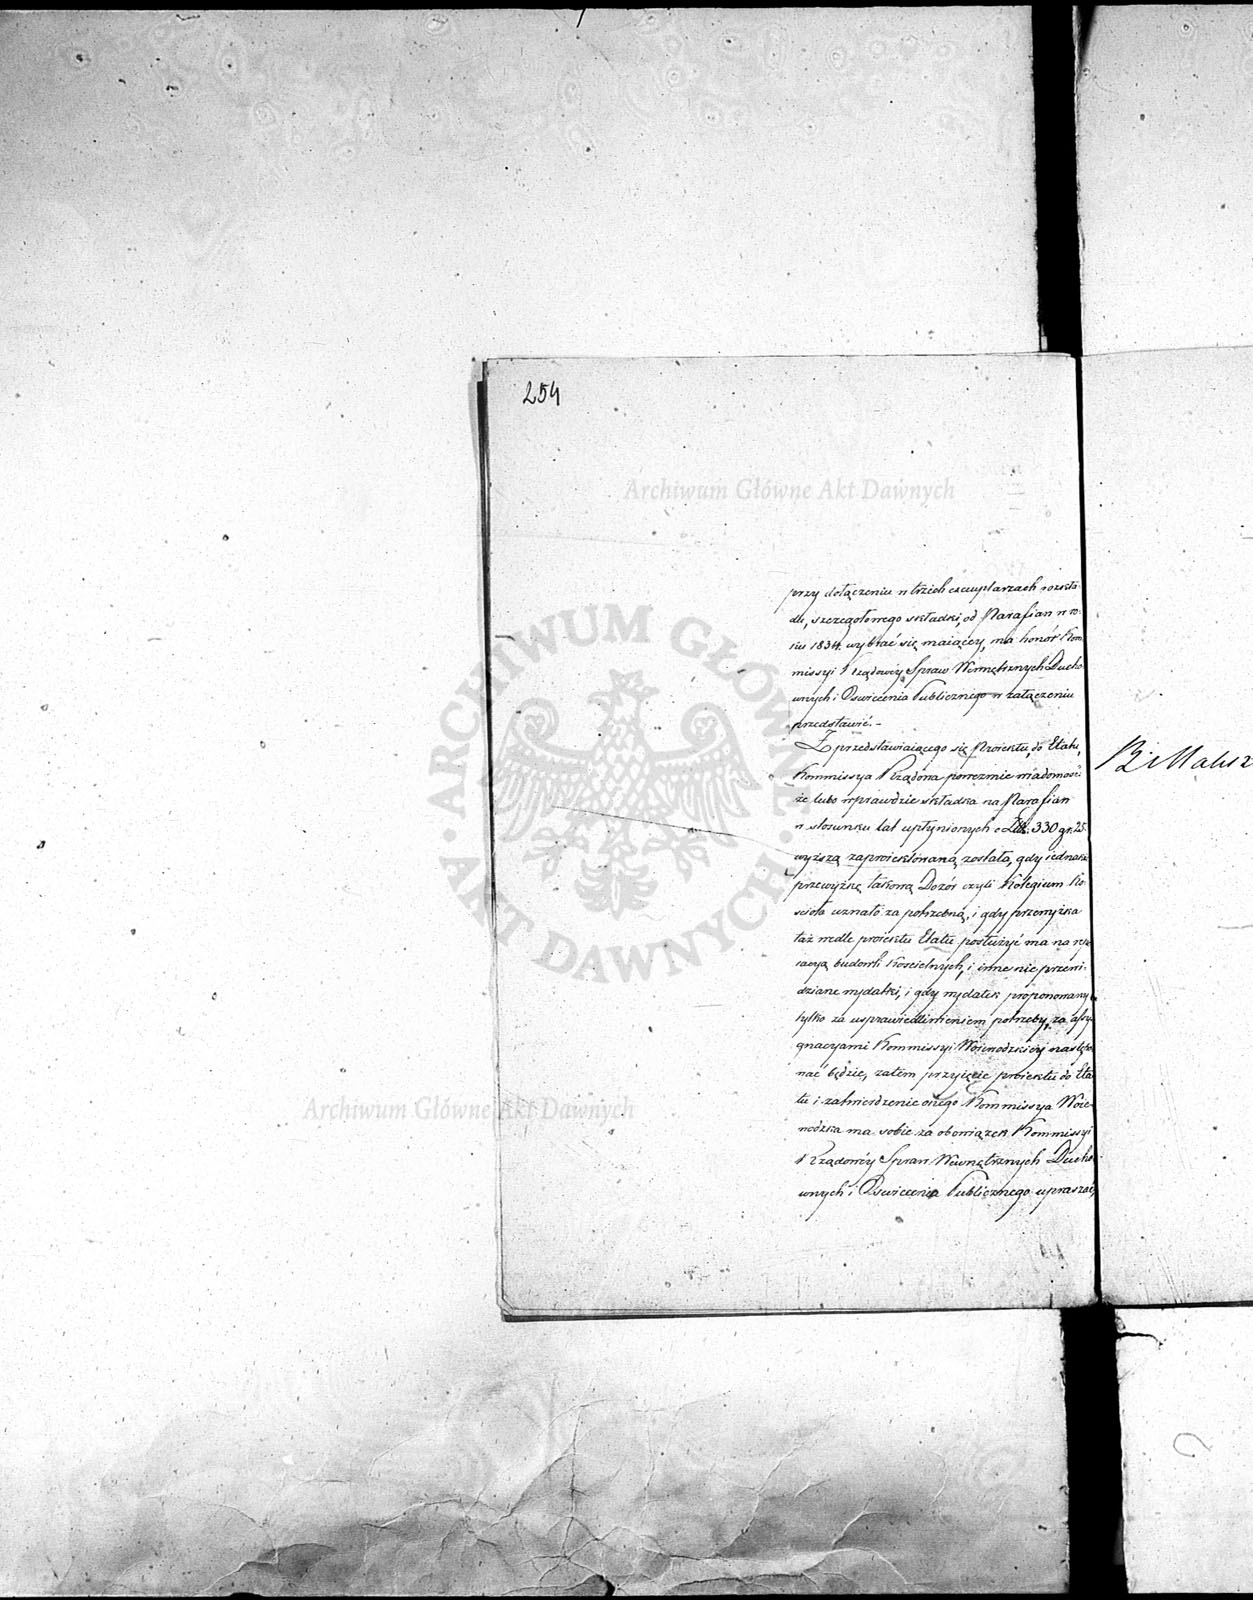 254
Archiwum Główne Akt Dawnych
przy dołączeniu w trzech exemplarzach rozkła-
du, szczegołowego składki, od Parafian w ro-
ku 1834 wybrać się maiącey, ma honor Kom
missyi Rządowéy Spraw Wewnętrznych Ducho
wnych i Oświecenia Publicznego w załączeniu
przedstawić.-
Z przedstawiaiącego się Proiektu, do Etatu,
Kommissya Rządowa poweźmie wiadomość
że lubo wprawdzie składka na Parafian
w stosunku lat upłynionych o Złł. 330 gr. 25.
wyższą zaproiektowaną została, gdy iednakże
przewyżkę takową Dozór czyli Kolegium Ko-
ścioła uznało za potrzebną, i gdy przewyżka
taż wedle proiektu Etatu posłużyć ma na repe
racyą budowli Kościelnych, i inne nie przewi-
dziane wydatki, i gdy wydatek proponowany
tylko za usprawiedliwieniem potrzeby, za assy
gnacyami Kommissyi Woiewódzkiéy nastąpo
wać będzie, zatem przyięcie proiektu do Eta
tu i zatwierdzenie onego Kommissya Woie-
wódzka ma sobie za obowiązek Kommissyi
Rządowéy Spraw Wewnętrznych Ducho
wnych i Oświecenia Publicznego upraszać,
ARCHIWUM GŁÓWNE
· AKT DAWNYCH ·
Archiwum Główne Akt Dawnych